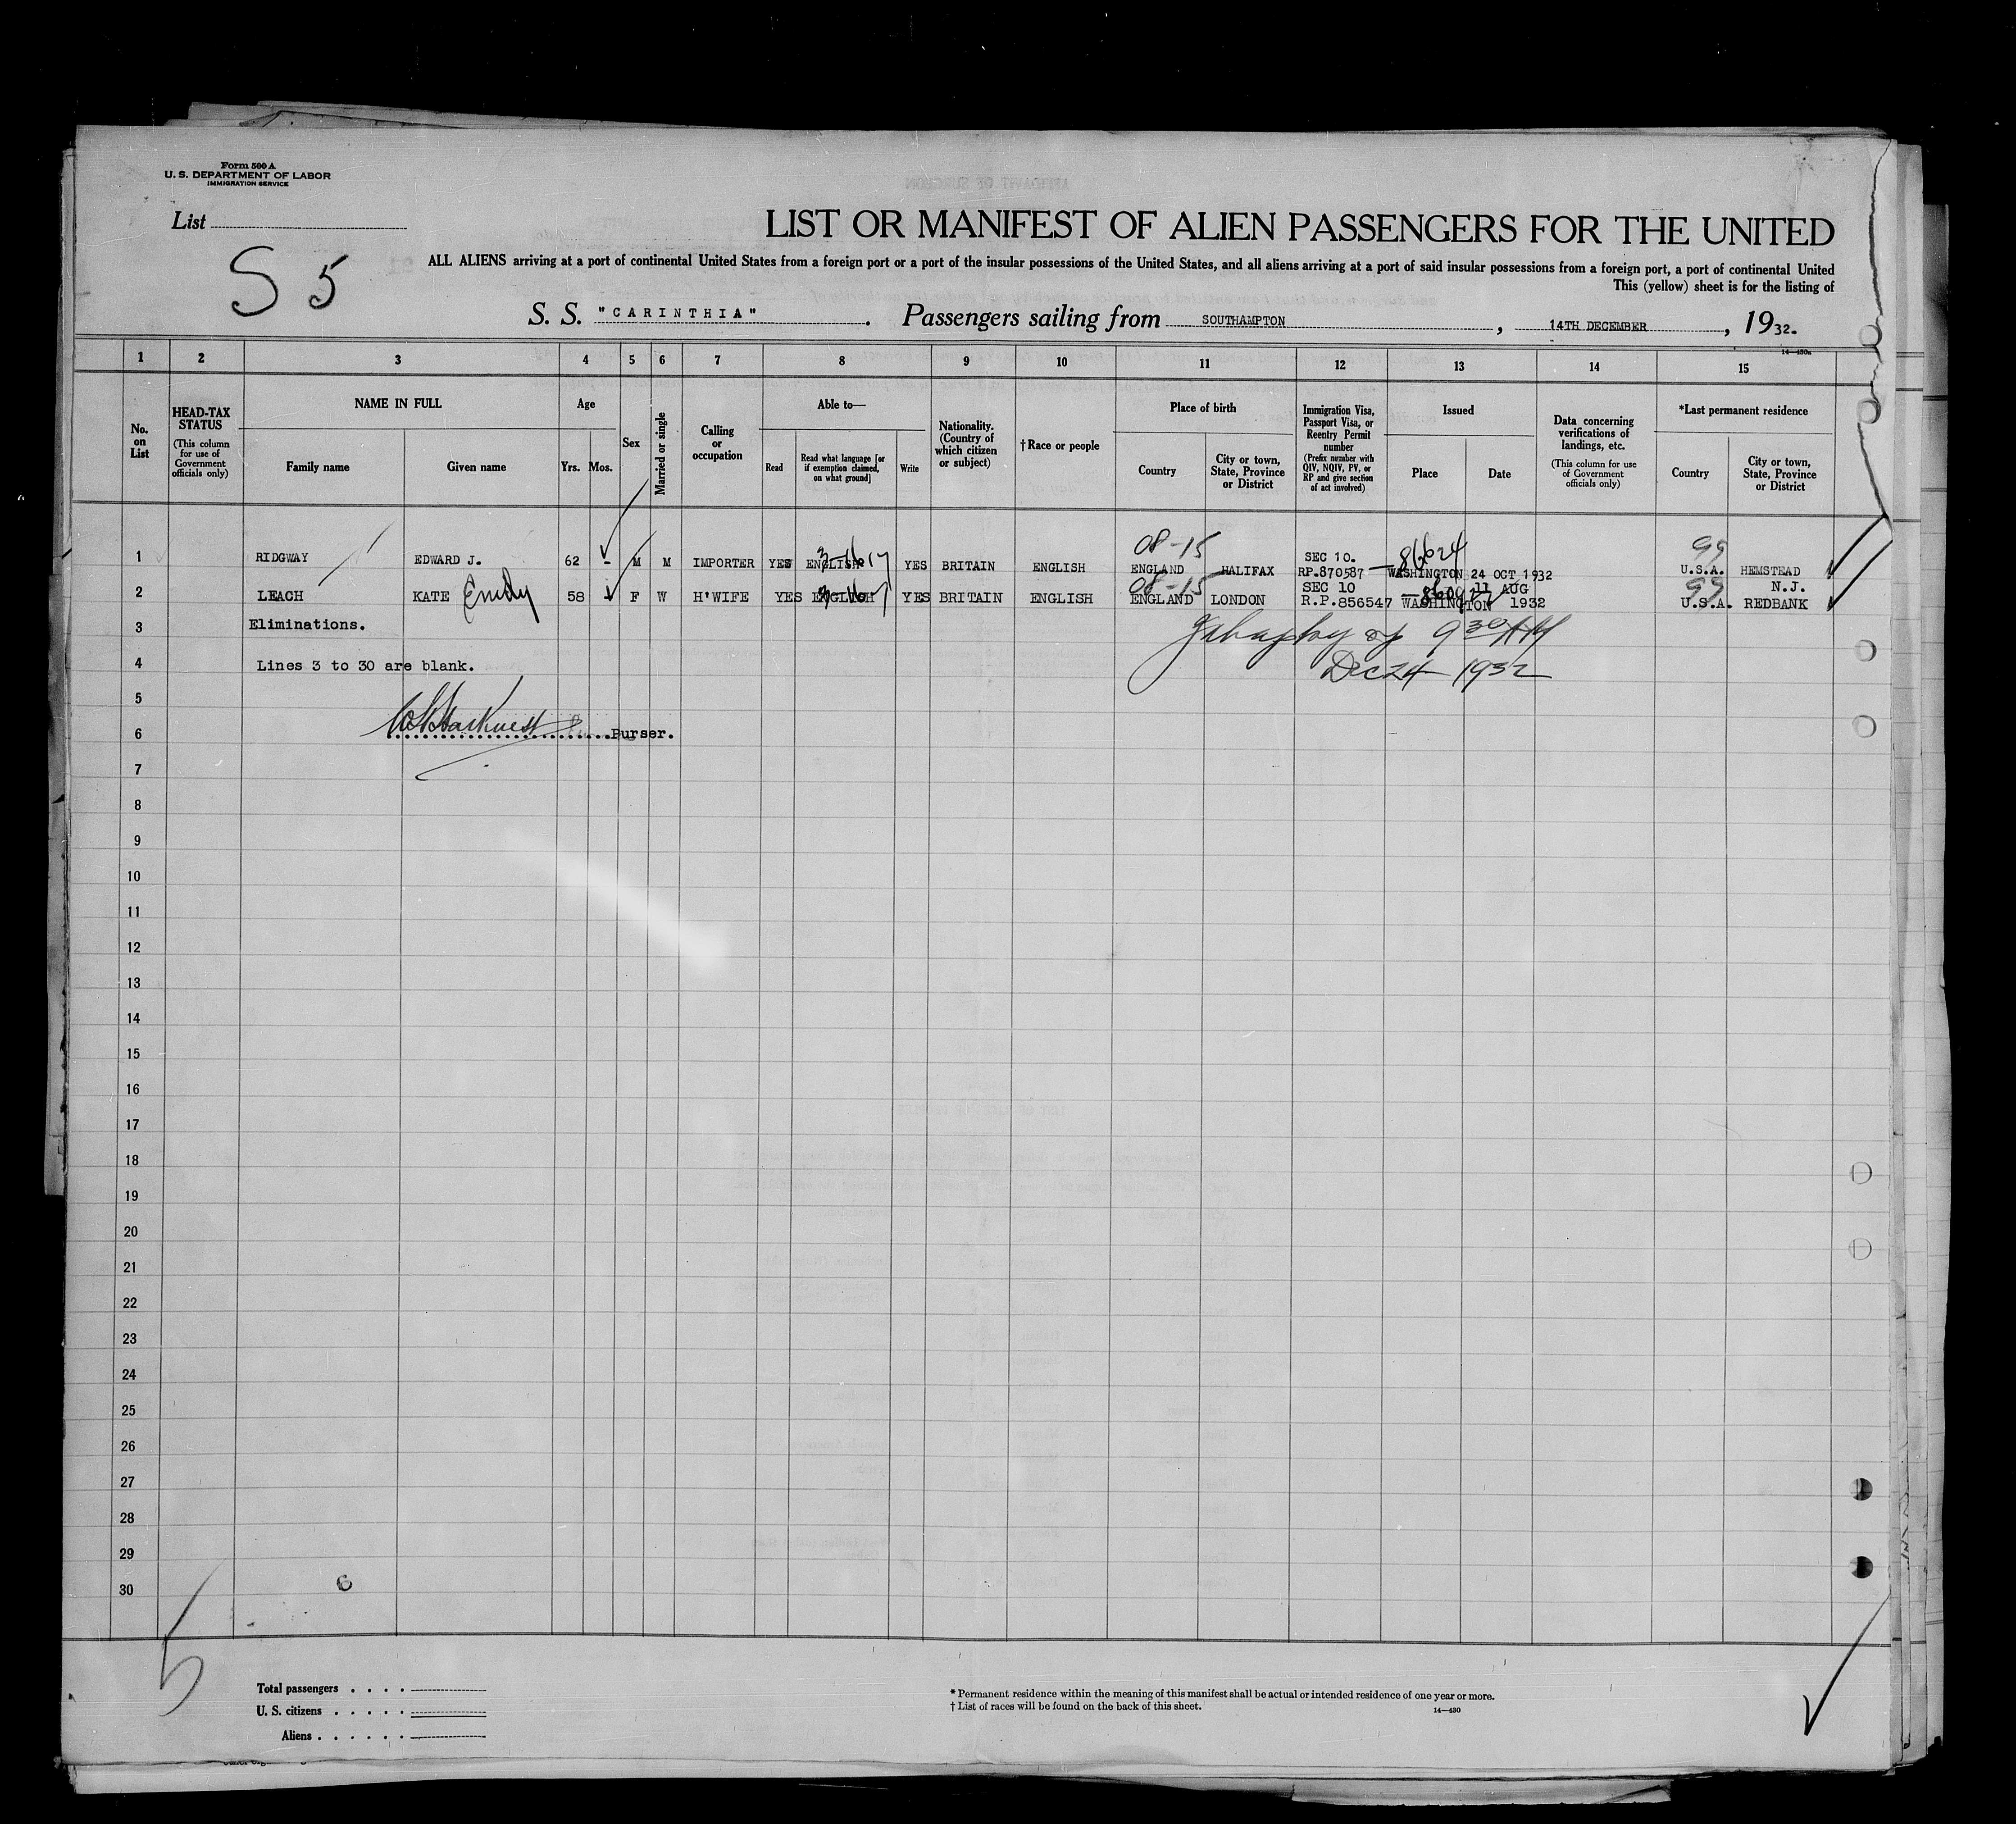 Form 500 A
U. S. DEPARTMENT OF LABOR
IMMIGRATION SERVICE
List
S 5
LIST OR MANIFEST OF ALIEN PASSENGERS FOR THE UNITED
ALL ALIENS arriving at a port of continental United States from a foreign port or a port of the insular possessions of the United States, and all aliens arriving at a port of said insular possessions from a foreign port, a port of continental United
This (yellow) sheet is for the listing of
S. S. "CARINTHIA". Passengers sailing from SOUTHAMPTON, 14TH DECEMBER, 1932.
14—430a
1 2 3 4 5 6 7 8 9 10 11 12 13 14 15
No. on List
HEAD-TAX STATUS
(This column for use of Government officials only)
NAME IN FULL
Family name
Given name
Age
Yrs. Mos.
Sex
Married or single
Calling or occupation
Able to—
Read
Read what language [or if exemption claimed, on what ground]
Write
Nationality. (Country of which citizen or subject)
†Race or people
Place of birth
Country
City or town, State, Province or District
Immigration Visa, Passport Visa, or Reentry Permit number
(Prefix number with QIV, NQIV, PV, or RP and give section of act involved)
Issued
Place
Date
Data concerning verifications of landings, etc.
(This column for use of Government officials only)
*Last permanent residence
Country
City or town, State, Province or District
08-15
86624
99
1 RIDGWAY EDWARD J. 62 - M M IMPORTER YES ENGLISH YES BRITAIN ENGLISH ENGLAND HALIFAX SEC 10. RP.870587 WASHINGTON 24 OCT 1932 U.S.A. HEMSTEAD
08-15
99
2 LEACH KATE Emily 58 F W H'WIFE YES ENGLISH YES BRITAIN ENGLISH ENGLAND LONDON SEC 10 R.P.856547 WASHINGTON 11 AUG 1932 U.S.A. N.J. REDBANK
3 Eliminations.
9 30 AM
4 Lines 3 to 30 are blank.
Dec 24 1932
5
6 Purser.
7
8
9
10
11
12
13
14
15
16
17
18
19
20
21
22
23
24
25
26
27
28
29
30
Total passengers . . . .
U. S. citizens . . . . .
Aliens . . . . . .
* Permanent residence within the meaning of this manifest shall be actual or intended residence of one year or more.
† List of races will be found on the back of this sheet.
14—430